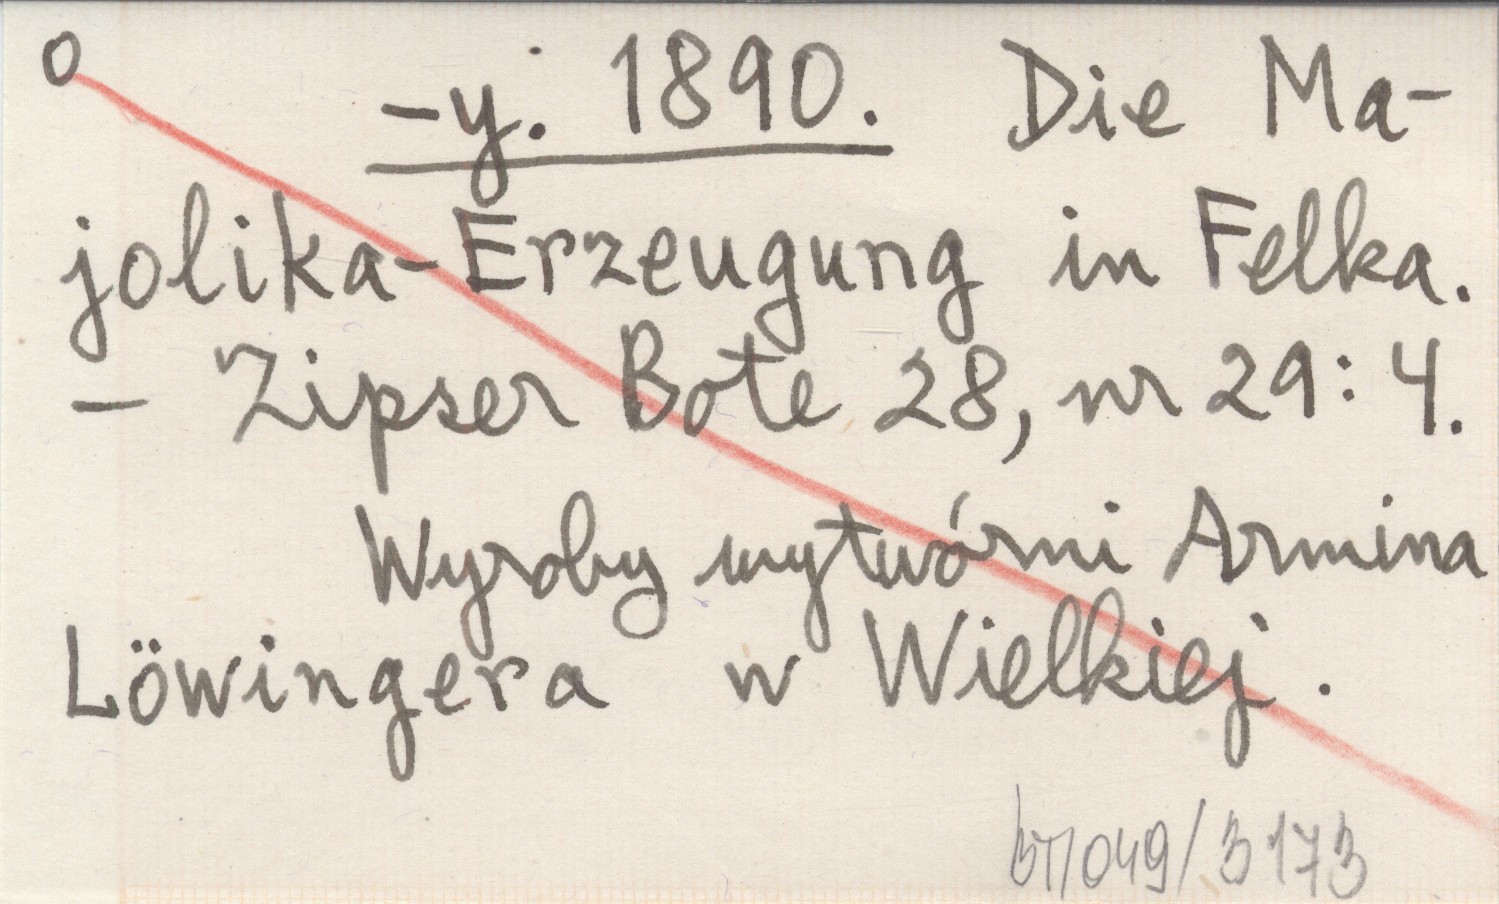 o
-y. 1890. Die Ma-
jolika-Erzeugung in Felka.
- Zipser Bote 28, nr 29: 4.
Wyroby wytwórni Armina
Löwingera w Wielkiej.
bT/049/3173